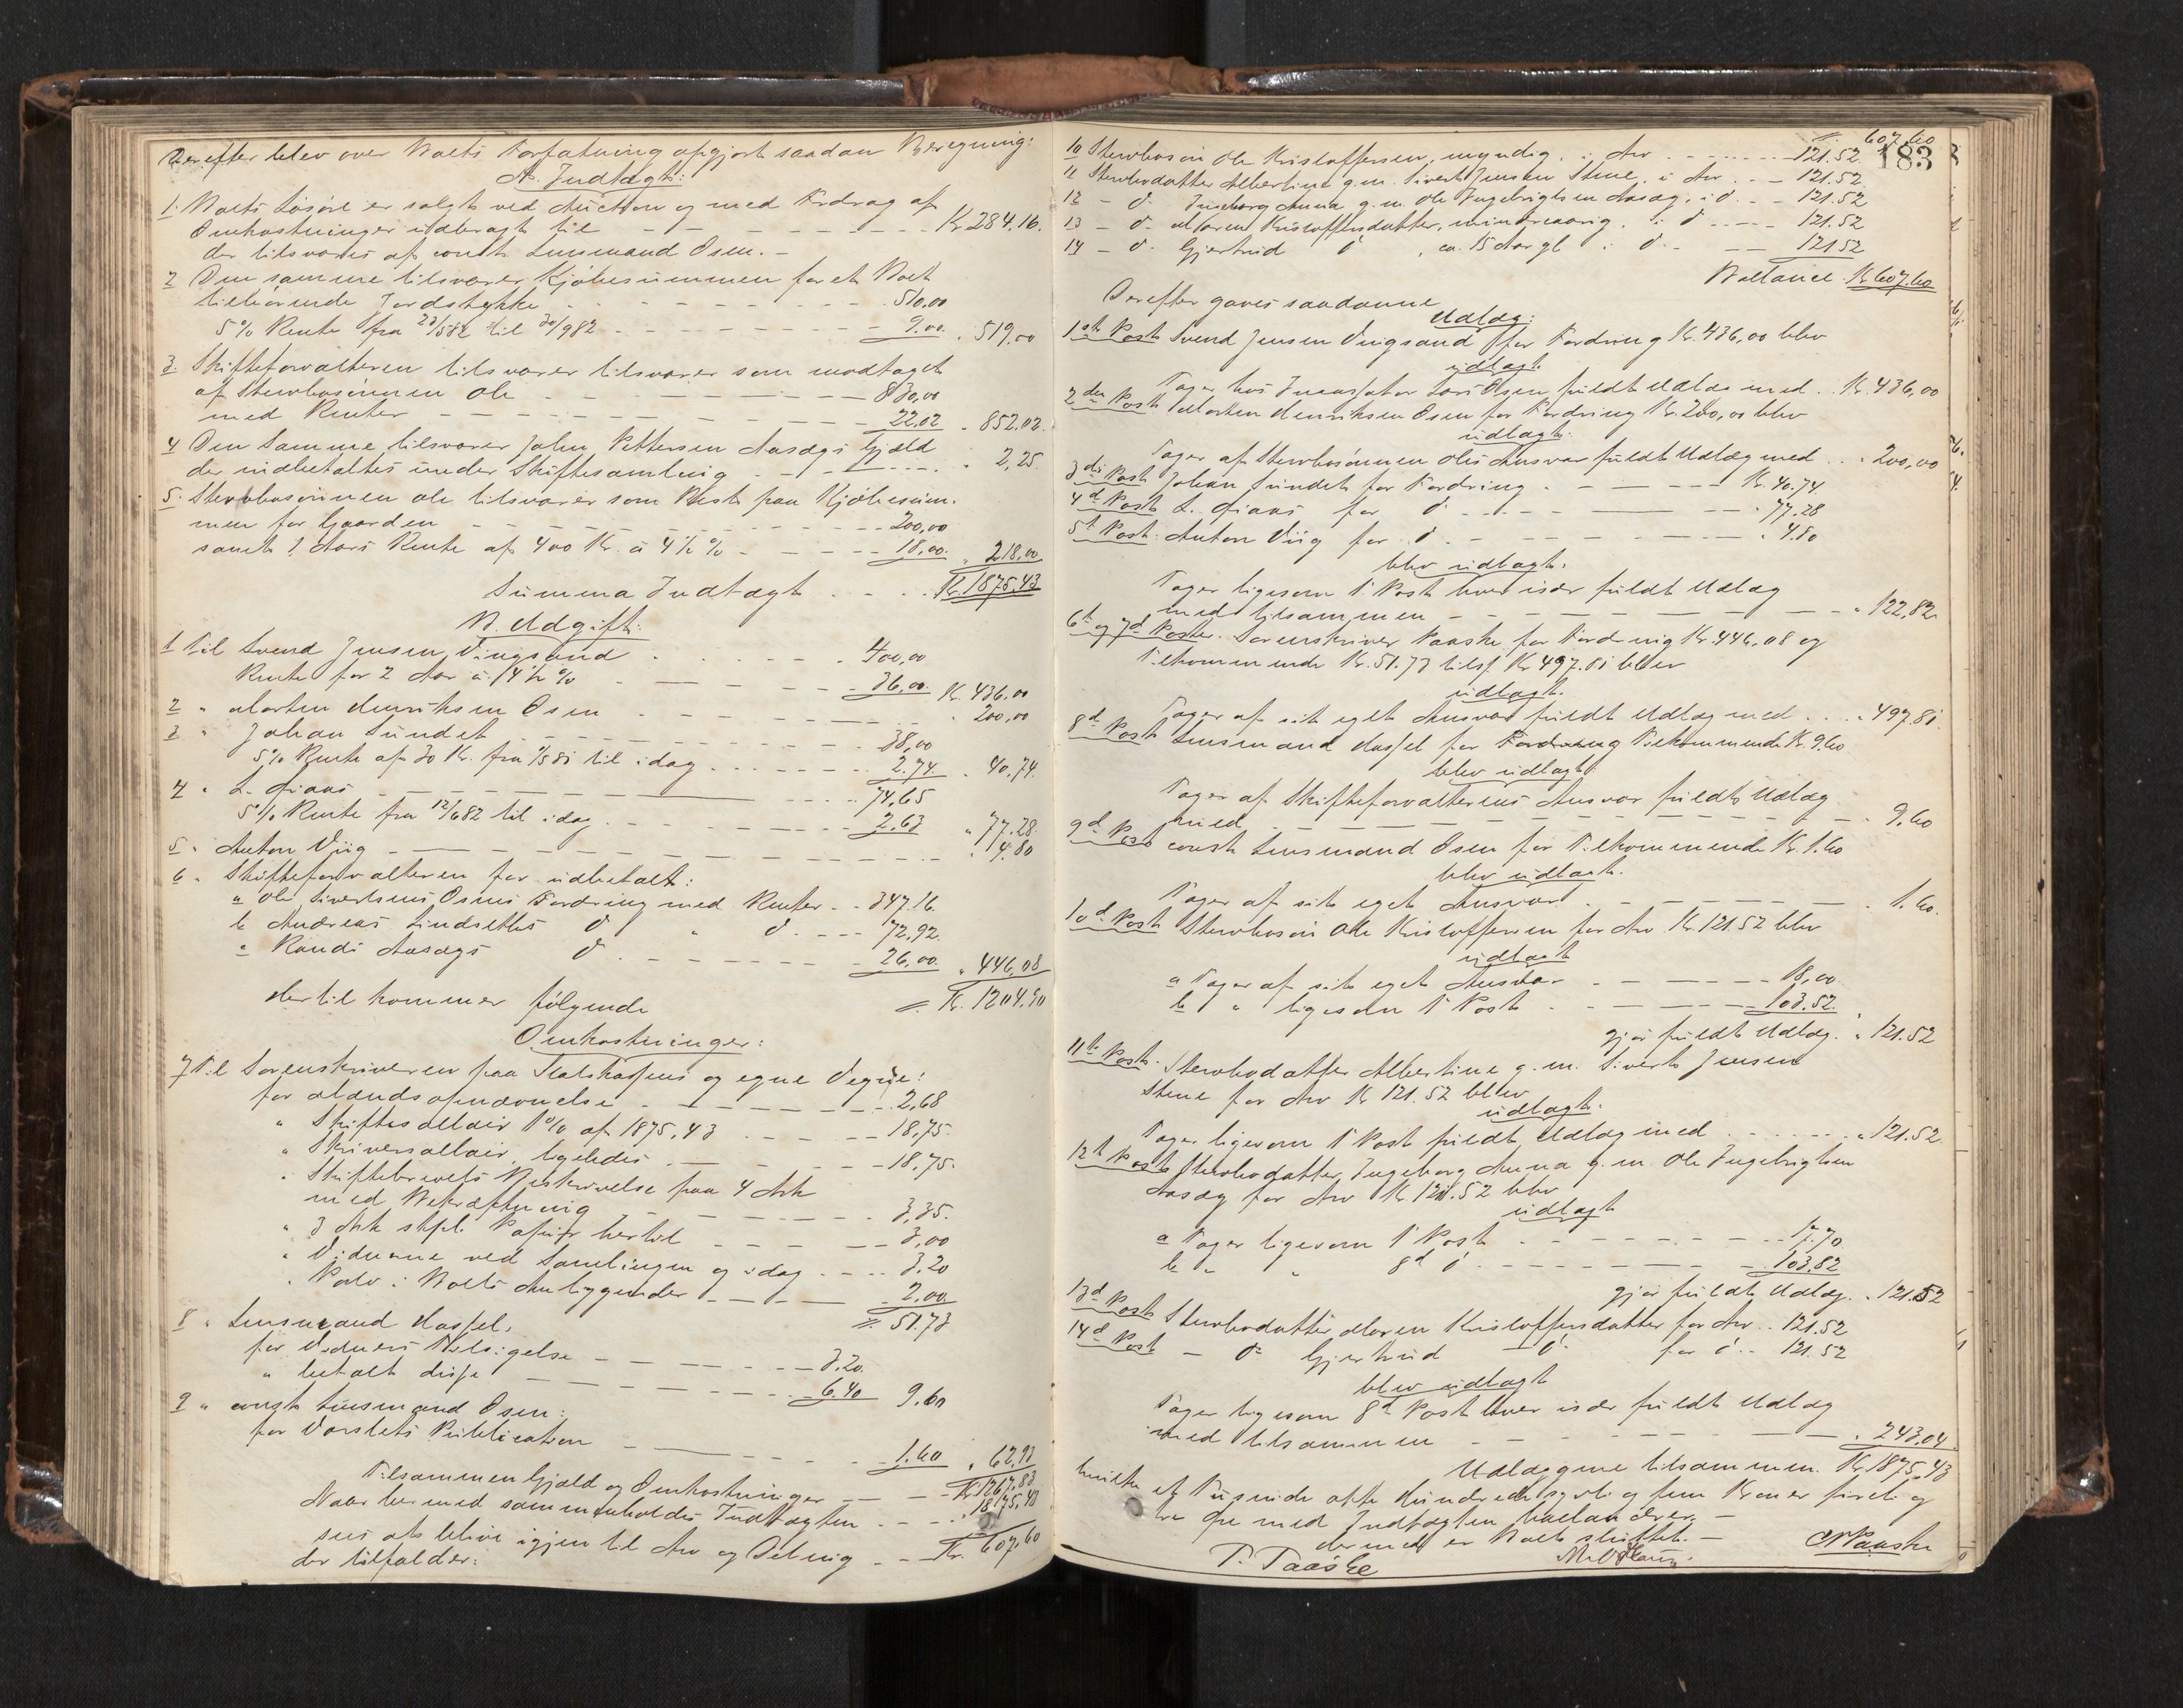 Derefter blev over Boets Forfatning opgjort saadan Beregning:
A. Indtægt:
1. Boets Løsøre er solgt ved Auction og med Fradrag af
Omkostninger udbragt til - - - - - - Kr 284.16.
der tilsvares af const. Lensmand Osen. -
2 Den samme tilsvarer Kjøbesummen for et Boet
tilhørende Jordstykke - - - - - - 510,00
5% Rente fra 23/5 82 til 30/9 82 - - - - - 9.00. . 519,00
3. Skifteforvalteren tilsvarer tilsvarer som modtaget
af Stervbosønnen Ole - - - - - - 830,00
med Renter - - - - - - 22.02 . 852.02.
4 Den Samme tilsvarer John Pettersen Aasægs Gjæld
der indbetaltes under Skiftesamling - - - - . 2,25.
5. Stervbosønnen Ole tilsvarer som Rest paa Kjøbesum-
men for Gaarden - - - - - - 200,00
samt 1 Aars Rente af 400 Kr. à 4½ % - - - - 18,00. . 218,00
Summa Indtægt - - - Kr. 1875,43
B. Udgift:
1 Til Svend Jensen Vingsand - - - - 400,00
Rente for 2 Aar à 4½ % - - - - 36,00. Kr. 436.00
2 " Morten Henriksen Osen - - - - - - . 200,00
3 " Johan Sundet - - - - - - 38,00
5% Rente af 30 Kr. fra 1/5 81 til idag - - - - 2.74. . 40,74.
4 " L. - - - - - - 74,65
5% Rente fra 12/6 82 til idag - - - - - 2.63 . 77.28.
5 " Anton Viig - - - - - - . 4,80
6 " Skifteforvalteren for udbetalt:
a Ole Sivertsens Osens Fordring med Renter - - 347.16.
b Andreas Lindsettes do " do - - - 72.92.
c Randi Aasægs do - - - - - 26,00. . 446,08
= Kr. 1204.90
dertil kommer følgende
Omkostninger:
7 Til Sorenskriveren paa Statskassens og egne Vegne:
for Mændsopnævnelse - - - - - - 2,68
" Skiftesallair 1% af 1875,43 - - - - 18,75.
" Skriversallair ligeledes - - - - 18,75.
" Skiftebrevets Beskrivelse paa 4 Ark
med Bekræftning - - - - - 3,35.
" 3 Ark stpl. Papir hertil - - - - 3,00
" Vidnerne ved Samlingen og idag - - - 3.20
" Porto i Boets Anliggender - - - - 2.00
= 51.73
8 " Lensmand Hassel,
for Vidners Tilsigelse - - - - - 3.20.
" betalt disse - - - - - - 6.40 9.60
9 " const. Lensmand Osen:
for Varslets Publication - - - - - 1.60 . 62,93
Tilsammen Gjæld og Omkostninger - - - Kr. 1267.83
Naar hermed sammenholdes Indtægten - - - . 1875.43
sees at blive igjen til Arv og Deling - - Kr. 607.60
der tilfalder:
Tr. 607.60
183
10 Stervbosøn Ole Kristoffersen, myndig, i Arv - - - - 121.52.
11 Stervbodatter Albertine g. m. Sivert Jensen Stene, i Arv - - - 121.52
12 - do Ingeborg Anna g. m. Ole Ingebrigtsen Aasæg, i do - - - 121.52
13 - do Maren Kristoffersdatter, mindreaarig, i do - - - - 121.52
14 - do Gjertrud do, ca. 15 Aar gl. i do - - - 121.52
Ballance Kr 607.60
Derefter gaves saadanne
Udlæg:
1ste Post Svend Jensen Vingsand for Fordring Kr. 436,00 blev
udlagt:
Tager hos Lars Olsen fuldt Udlæg med . Kr. 436,00
2den Post Morten Henriksen Osen for Fordring Kr. 200,00 blev
udlagt:
Tager af Stervbosønnen Oles Ansvar fuldt Udlæg med . . 200,00
3de Post Johan Sundet for Fordring - - - - Kr. 40.74.
4de Post L. for do - - - - - . 77,28
5te Post. Anton Viig for do - - - - - . 4.80
blev udlagt:
Tager ligesom 1ste Post hver især fuldt Udlæg
med tilsammen - - - - - - . 122,82.
6te og 7de Poster. Sorenskriver Paaske for Fordring Kr. 446,08 og
Tilkommende Kr. 51.73 tils. Kr 497.81 blev
udlagt:
Tager af sit eget Ansvar fuldt Udlæg med . . . . 497.81
8de Post Lensmand Hassel for Tilkommende Kr. 9.60
blev udlagt
Tager af Skifteforvalterens Ansvar fuldt Udlæg
med - - - - - - - . 9.60
9de Post const. Lensmand Osen for Tilkommende Kr. 1.60
blev udlagt.
Tager af sit eget Ansvar - - - - - . 1.60.
10de Post Stervbosøn Ole Kristoffersen for Arv Kr. 121.52 blev
udlagt
a Tager af sit eget Ansvar - - - - 18,00.
b " ligesom 1ste Post - - - - 103.52.
gjør fuldt Udlæg. . 121.52
11te Post. Stervbodatter Albertine g. m. Sivert Jensen
Stene for Arv Kr 121.52 blev
udlagt:
Tager ligesom 1ste Post fuldt Udlæg med - - - - . 121.52
12te Post Stervbodatter Ingeborg Anna g. m. Ole Ingebrigtsen
Aasæg for Arv Kr. 121.52 blev
udlagt
a Tager ligesom 1ste Post - - - - - 17.70
b " " 8de do - - - - - 103.82
gjør fuldt Udlæg. . 121.52
13de Post Stervbodatter Maren Kristoffersdatter for Arv . . 121.52
14de Post - do Gjertrud do for do . . 121.52
blev udlagt
Tager ligesom 8de Post hver især fuldt Udlæg
med tilsammen - - - - - - . 243,04
Udlæggene tilsammen. Kr. 1875.43
hvilke et Tusinde otte Hundrede syvti og fem Kroner firti og
tre Øre med Indtægten ballancerer. -
dermed er Boet sluttet. -
P. Paaske
CN Paaske